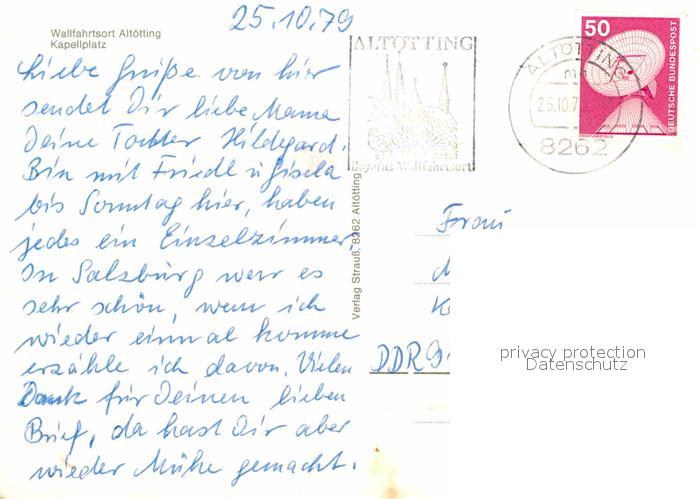 25.10.79
Wallfahrtsort Altötting
Kapellplatz
Liebe Grüße von hier
sendet Dir liebe Mama
Deine Tochter Hildegard.
Bin mit Friedl u Gisela
bis Sonntag hier, haben
jedes ein Einzelzimmer.
In Salzburg war es
sehr schön, wenn ich
wieder einmal komme
erzähle ich davon. Vielen
Dank für Deinen lieben
Brief, da hast Dir aber
wieder Mühe gemacht.
Verlag Strauß, 8262 Altötting
ALTÖTTING
Bayerns Wallfahrtsort
ALTÖTTING
25.10.7
8262
50
DEUTSCHE BUNDESPOST
Frau
DDR 9
privacy protection
Datenschutz